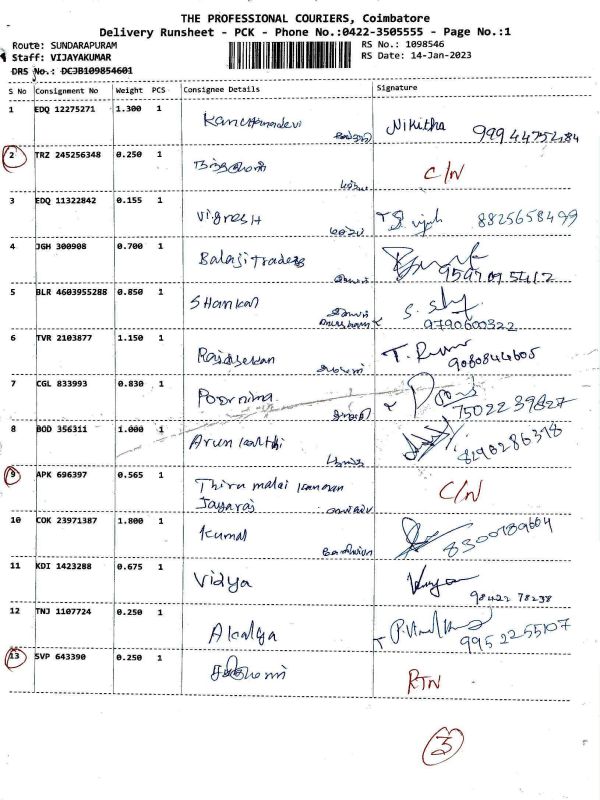 THE PROFESSIONAL COURIERS, Coimbatore
Delivery Runsheet - PCK - Phone No.:0422-3505555 - Page No.:1
Route: SUNDARAPURAM RS No.: 1098546
Staff: VIJAYAKUMAR RS Date: 14-Jan-2023
DRS No.: DCJB109854601
S No Consignment No Weight PCS Consignee Details Signature
1 EDQ 12275271 1.300 1 Kanchanadevi Nikitha
2 TRZ 245256348 0.250 1 C/N
3 EDQ 11322842 0.155 1 Vignesh 8825658499
4 JGH 300908 0.700 1 Balaji Traders
5 BLR 4603955288 0.850 1 Shankar 9790600322
6 TVR 2103877 1.150 1 Rajasekan 9080844605
7 CGL 833993 0.830 1 Poornima 7502239827
8 BOD 356311 1.000 1 Arun karthi
9 APK 696397 0.565 1 Thiru malai C/N
Jayaraj
10 COK 23971387 1.800 1 Kumal
11 KDI 1423288 0.675 1 Vidya 98422 78238
12 TNJ 1107724 0.250 1 Akalya 9952255107
13 SVP 643390 0.250 1 RTN
3